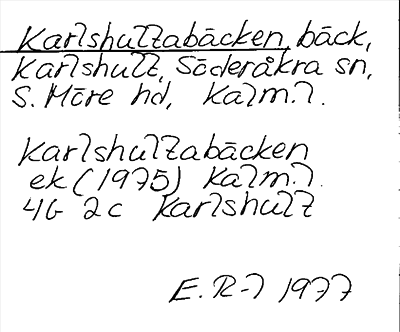 Karlshultzabäcken, bäck,
Karlshult, Söderåkra sn,
S. Möre hd, Kalm.l.
Karlshultzabäcken
ek (1975) Kalm.l.
4G 2c Karlshult
E. R-l 1977